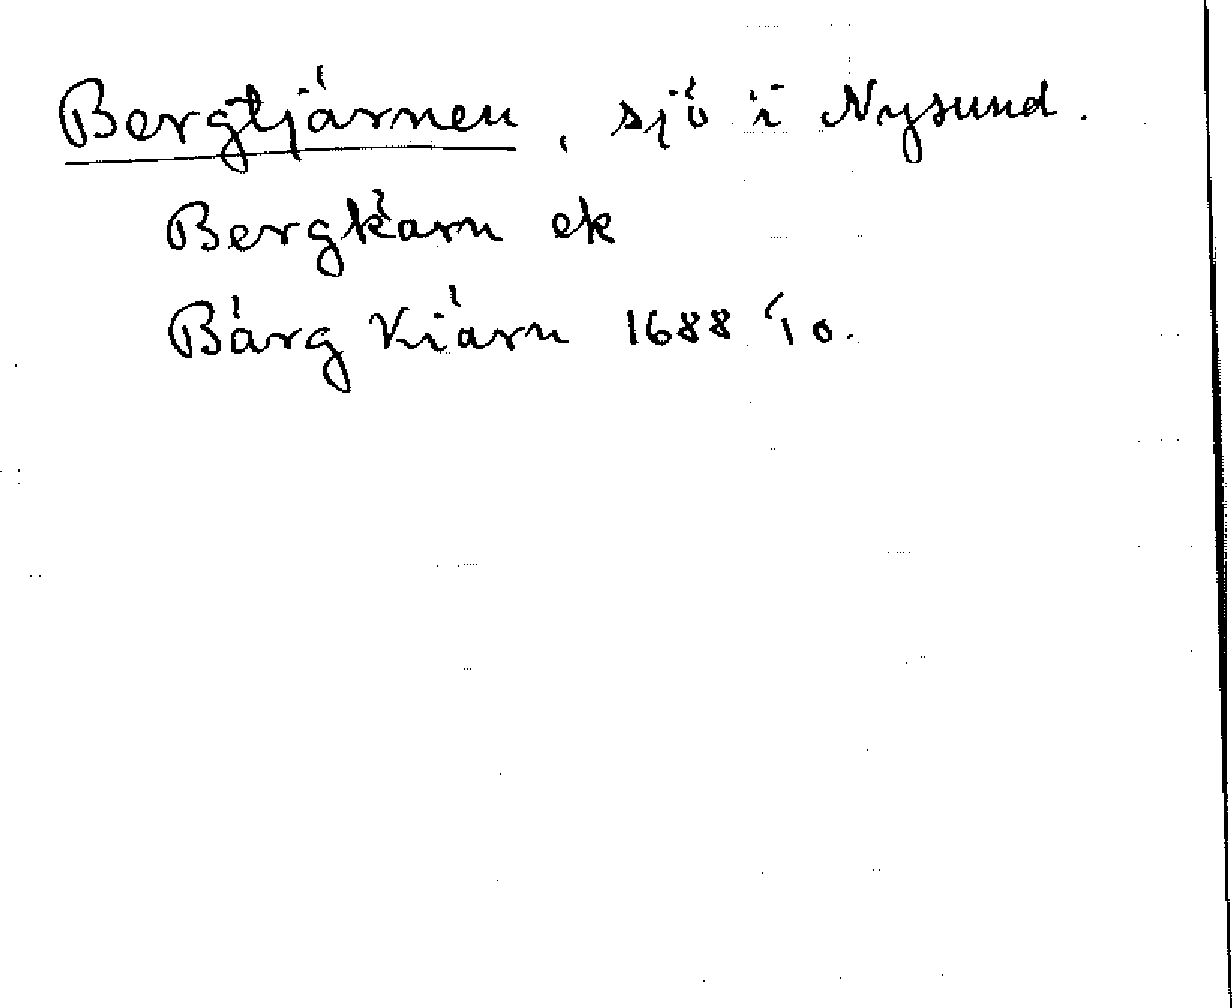 Bergtjärnen, sjö i Nysund.
Bergkärn ek
Bärg Kiärn 1688 10.